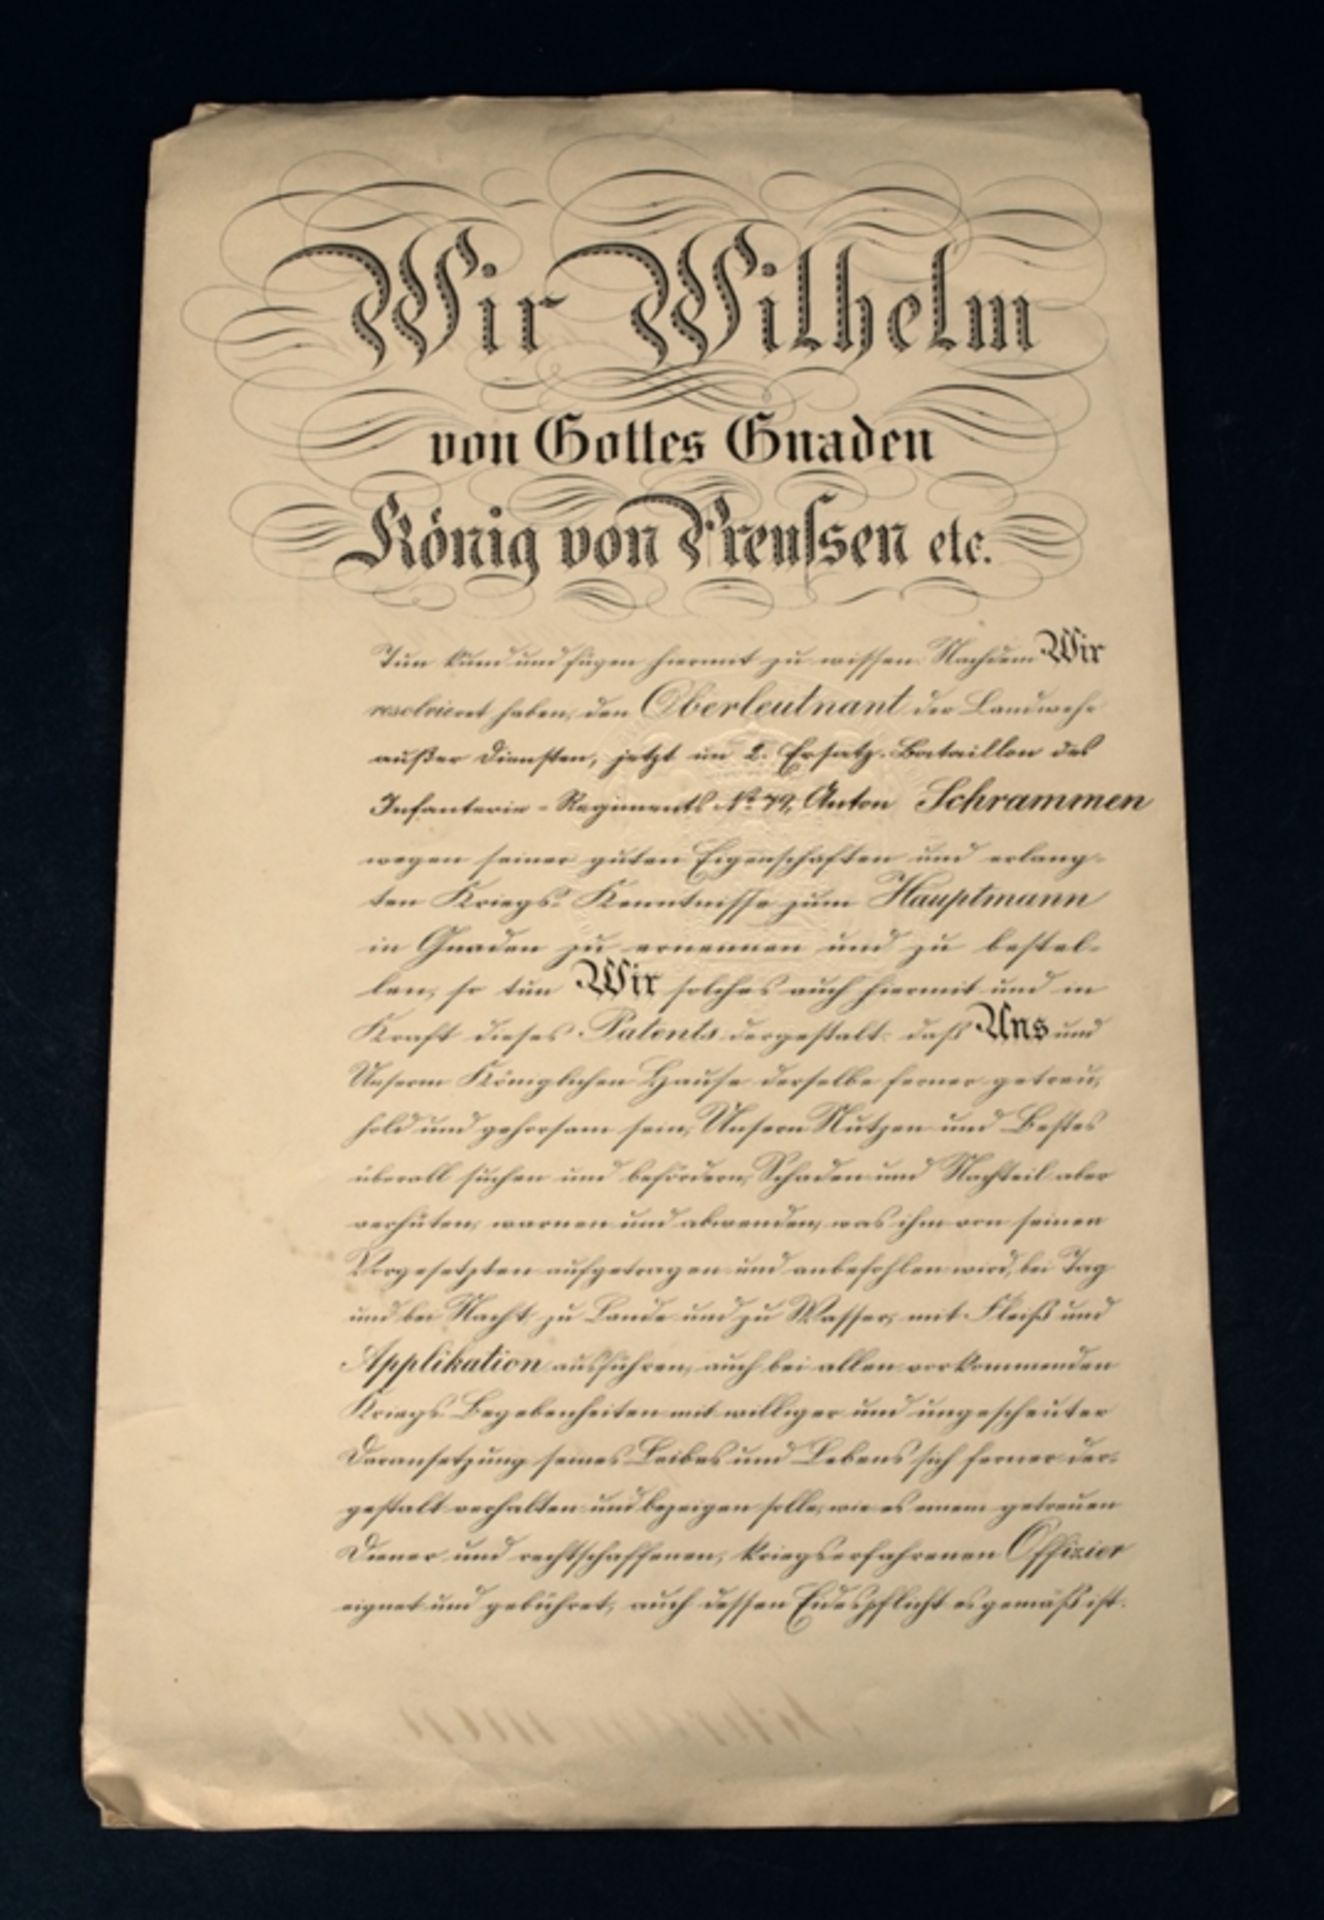 Wir Wilhelm
von Gottes Gnaden
König von Preussen etc.
Tun kund und fügen hiermit zu wissen. Nachdem Wir
resolvieret haben, den Oberleutnant der Landwehr
außer Diensten, jetzt im 2. Ersatz-Bataillon des
Infanterie-Regiments No 79, Anton Schrammen
wegen seiner guten Eigenschaften und erlang-
ten Kriegs-Kenntnisse zum Hauptmann
in Gnaden zu ernennen und zu bestel-
len, so tun Wir solches auch hiermit und in
Kraft dieses Patents dergestalt: daß Uns und
Unserm Königlichen Hause derselbe ferner getreu,
hold und gehorsam sein, Unsern Nutzen und Bestes
überall suchen und befördern, Schaden und Nachteil aber
verhüten, warnen und abwenden, was ihm von seinen
Vorgesetzten aufgetragen und anbefohlen wird, bei Tag
und bei Nacht, zu Lande und zu Wasser, mit Fleiß und
Applikation ausführen, auch bei allen vorkommenden
Kriegs-Begebenheiten mit williger und ungescheuter
Daransetzung seines Leibes und Lebens sich ferner der-
gestalt verhalten und bezeigen solle, wie es einem getreuen
Diener und rechtschaffenen, kriegserfahrenen Offizier
eignet und gebühret, auch dessen Eidespflicht es gemäß ist.